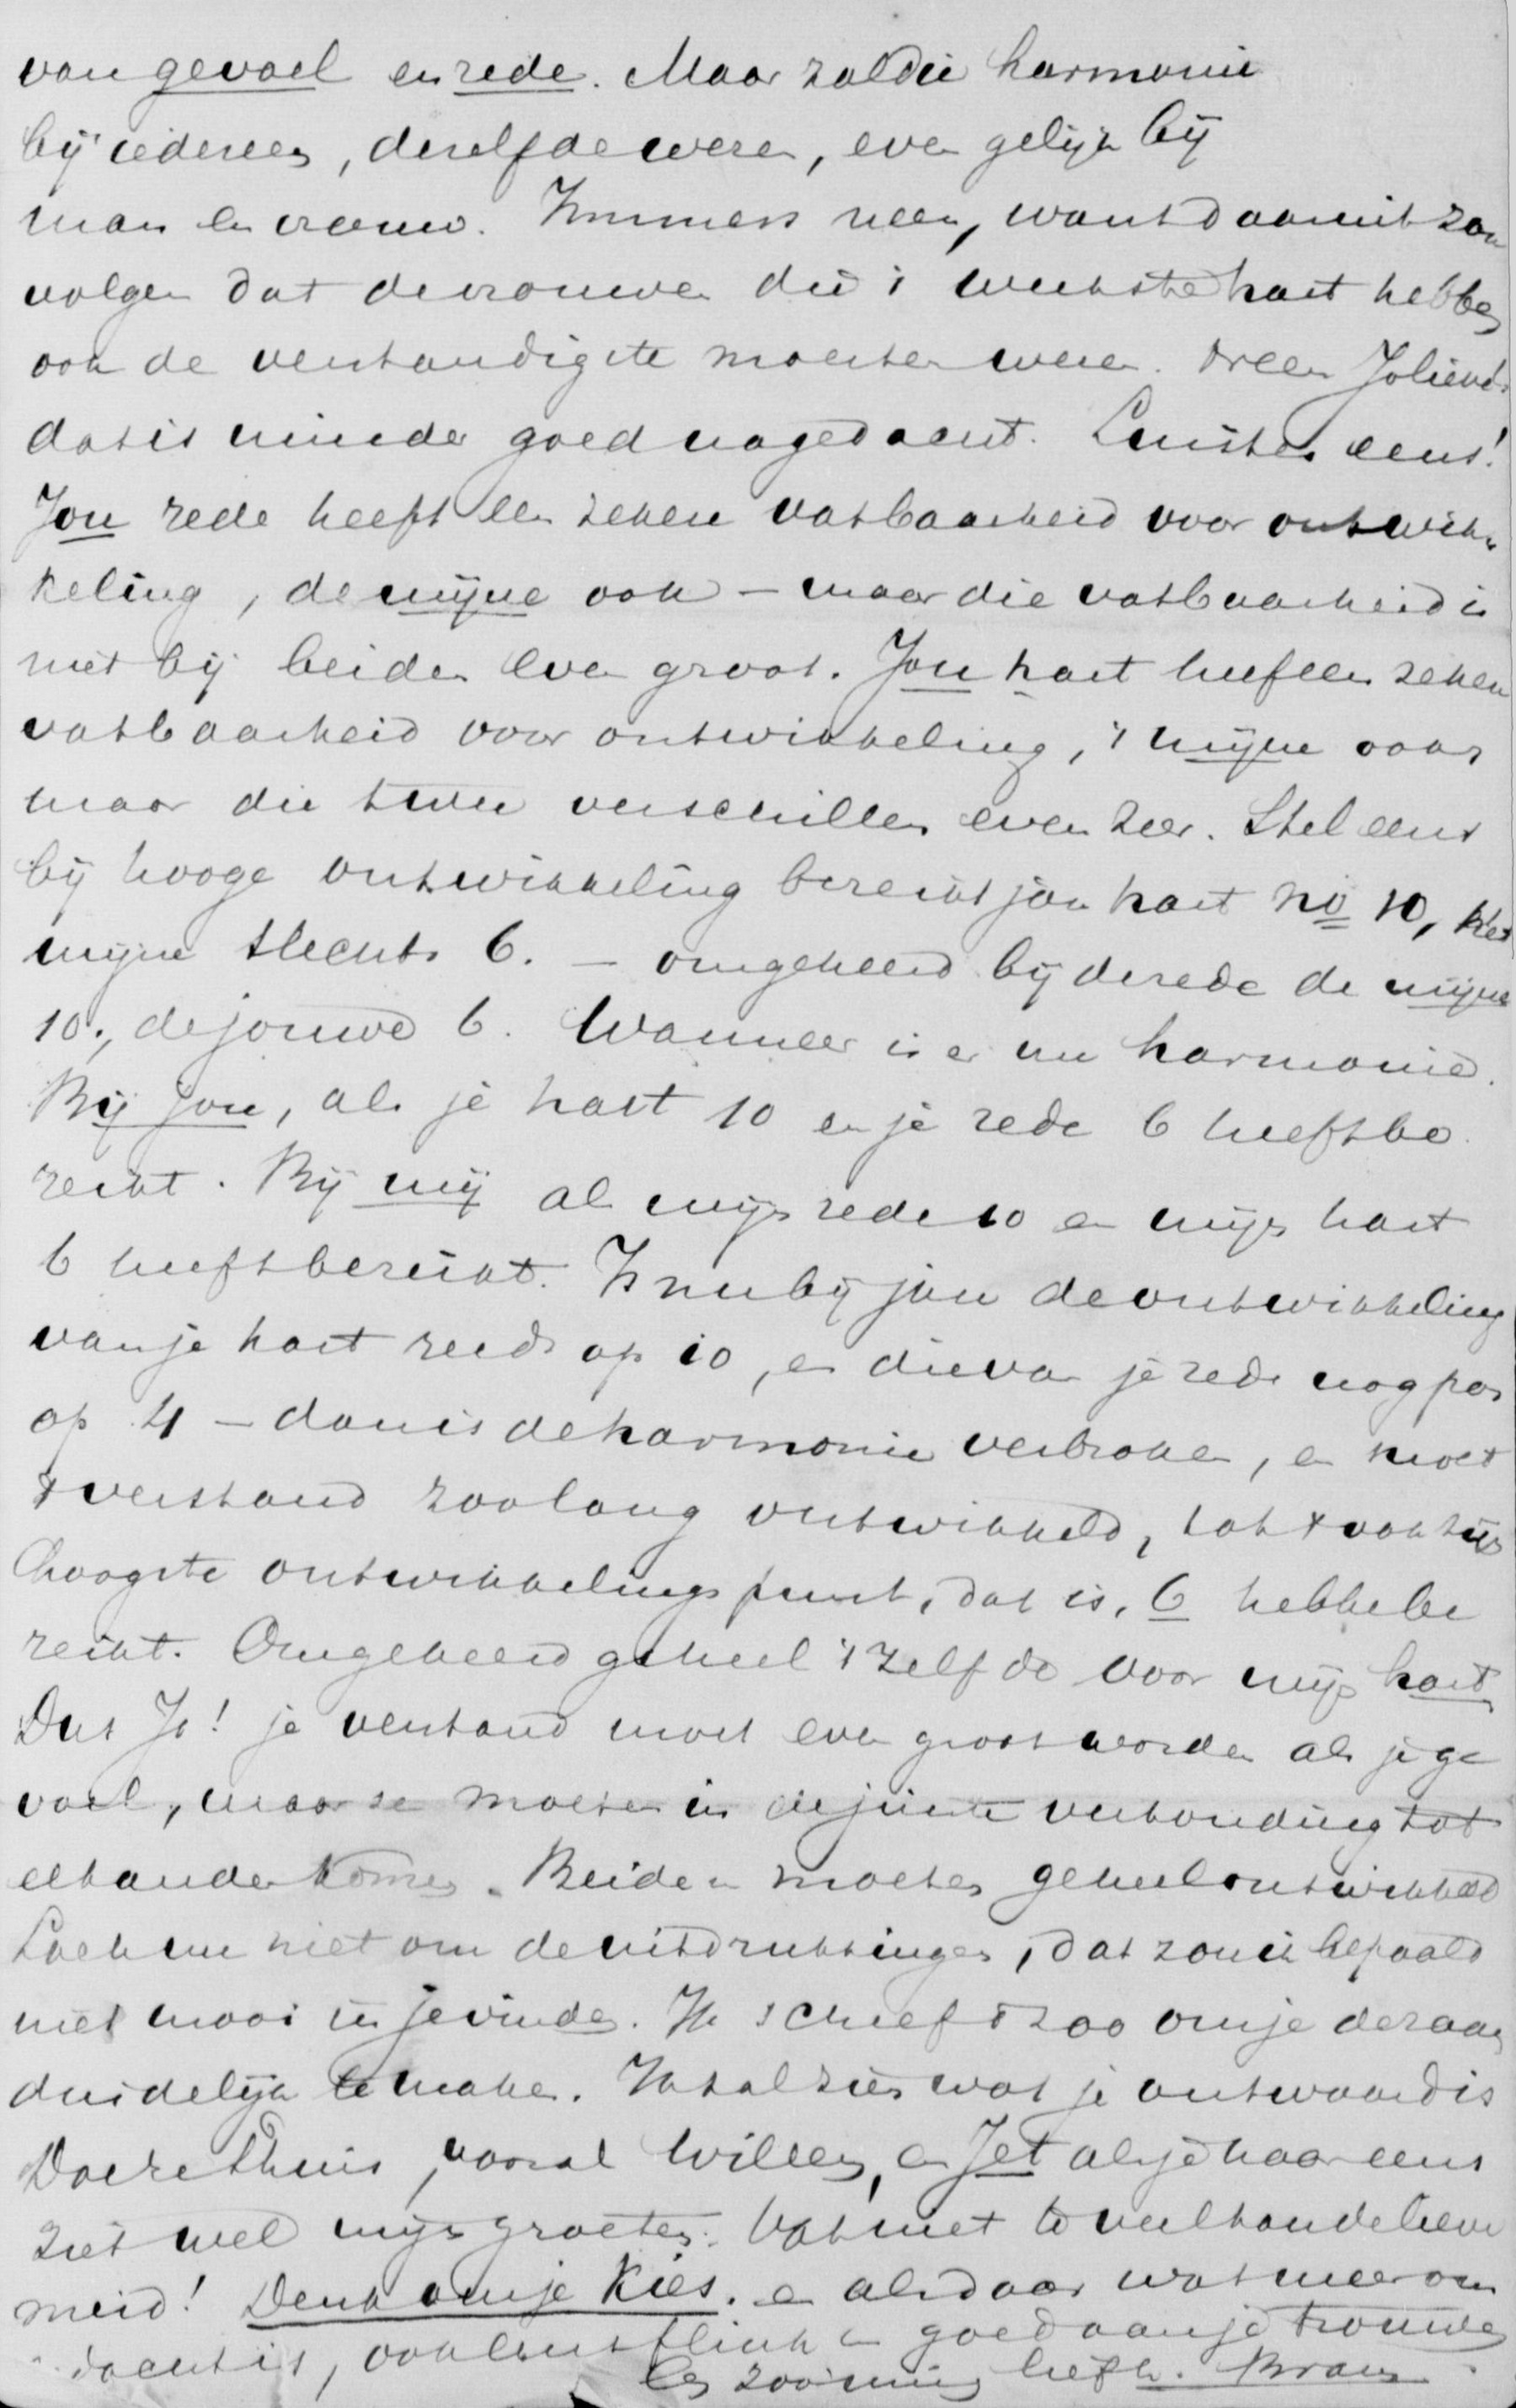 van gevoel en rede. Maar zal die harmonie
bij iedereen, dezelfde wezen, even gelijk bij
man en vrouw. Immers neen, want daaruit zou
volgen dat de vrouwen die 't weekste hart hebben
ook de verstandigste moesten wezen. Neen Jolieve,
dat is minder goed nagedacht. Luister eens!
Jou rede heeft een zekere vatbaarheid voor ontwik-
keling, de mijne ook – maar die vatbaarheid is
niet bij beiden even groot. Jou hart heeft een zekere
vatbaarheid voor ontwikkeling, 't mijne ook,
maar die twee verschillen even zeer. Stel eens
bij hooge ontwikkeling bereikt jou hart no 10, het
mijne slechts 6. – omgekeerd bij de rede de mijne
10, de jouwe 6. Wanneer is er nu harmonie.
Bij jou, als je hart 10 en je rede 6 heeft be
reikt. Bij mij als mijn rede 10 en mijn hart
6 heeft bereikt. Is nu bij jou de ontwikkeling
van je hart reeds op 10, en die van je rede nog pas
op 4 – dan is de harmonie verbroken, en moet
't verstand zoolang ontwikkeld, tot 't ook zijn
hoogste ontwikkelingspunt, dat is, 6 hebbe be
reikt. Omgekeerd geheel 't zelfde voor mijn hart.
Dus Jo! je verstand moet even groot worden als je ge
voel, maar ze moeten in de juiste verhouding tot
elkander komen. Beiden moeten geheel ontwikkeld
Lach nu niet om de uitdrukkingen, dat zou ik bepaald
niet mooi in je vinden. Ik schreef 't zoo om je de zaak
duidelijk te maken. Ik zal zien wat je antwoord is
Doe ze thuis, vooral Willem, en Jet als je haar eens
ziet wel mijn groeten. Vat niet te veel kou de lieve
meid! Denk om je Kies. en als daar wat meer om
dacht is, ook eens flink en goed aan je trouwe
en zoo innig liefh. Bram.